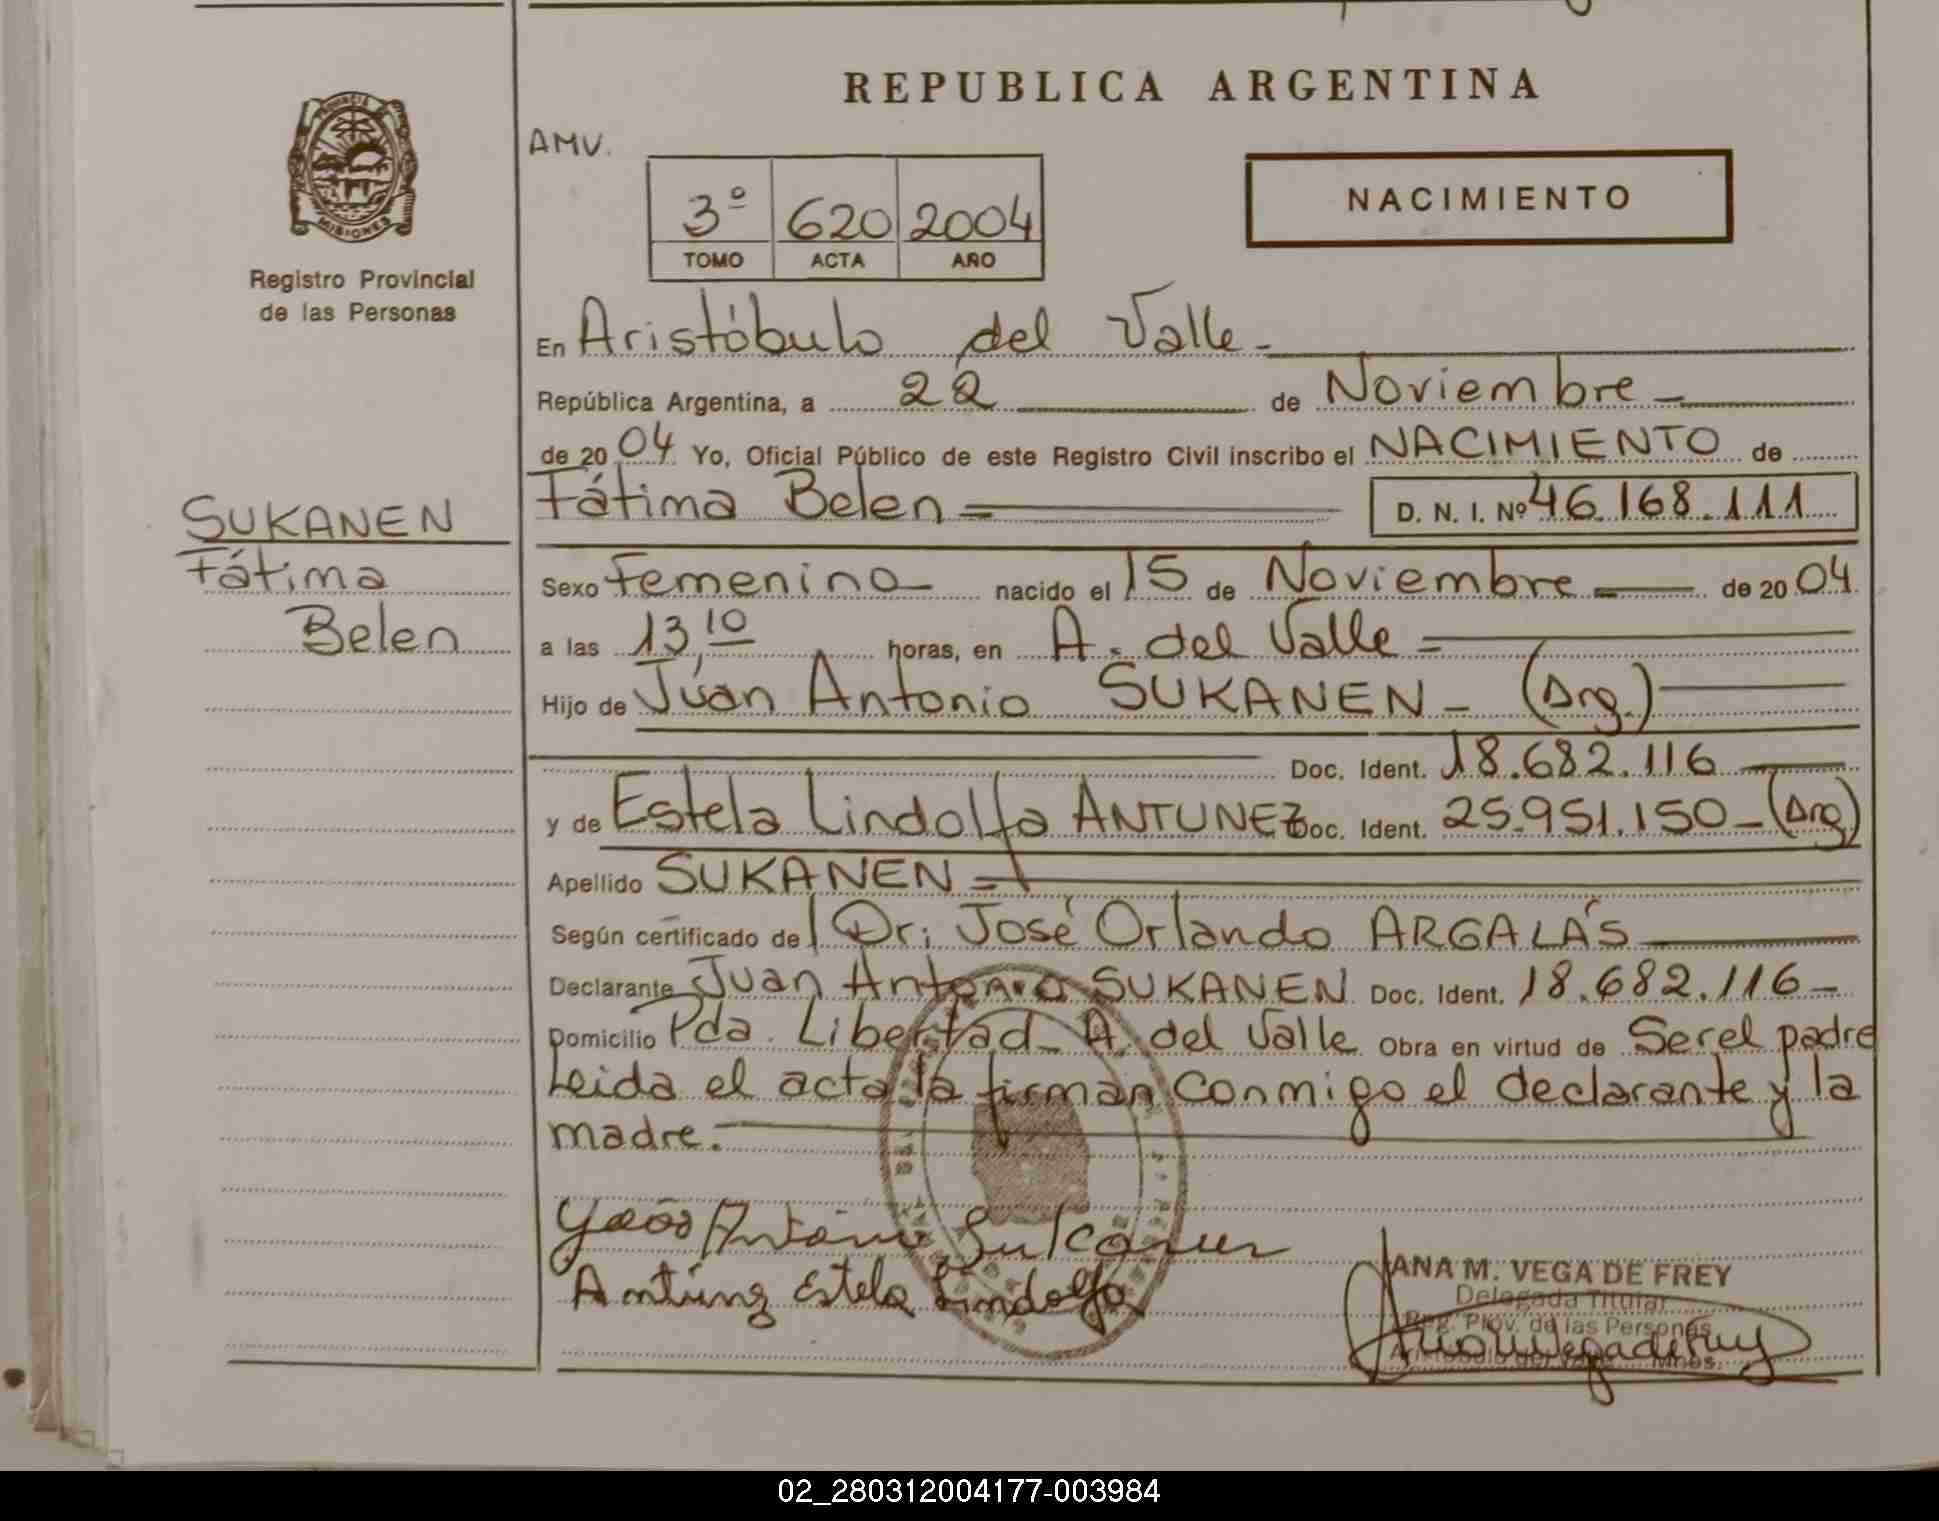 REPUBLICA ARGENTINA
AMV.
NACIMIENTO
3º 620 2004
TOMO ACTA AÑO
MISIONES
Registro Provincial
de las Personas
En Aristóbulo del Valle -
República Argentina, a 22 de Noviembre -
de 20 04 Yo, Oficial Público de este Registro Civil inscribo el NACIMIENTO de
Fátima Belen = D. N. I. Nº 46.168.111
SUKANEN
Fátima
Belen
Sexo Femenino nacido el 15 de Noviembre de 20 04
a las 13,10 horas, en A. del Valle =
Hijo de Juan Antonio SUKANEN - (Arg.)
Doc. Ident. 18.682.116
y de Estela Lindolfa ANTUNEZ Doc. Ident. 25.951.150 - (Arg)
Apellido SUKANEN =
Según certificado del Dr: José Orlando ARGALÁS
Declarante Juan Antonio SUKANEN Doc. Ident. 18.682.116 -
Domicilio Pda. Libertad - A. del Valle Obra en virtud de Ser el padre
Leida el acta la firman conmigo el declarante y la
madre.
Antonio
Estela Lindolfa
ANA M. VEGA DE FREY
Delegada Titular
Reg. Prov. de las Personas
02_280312004177-003984